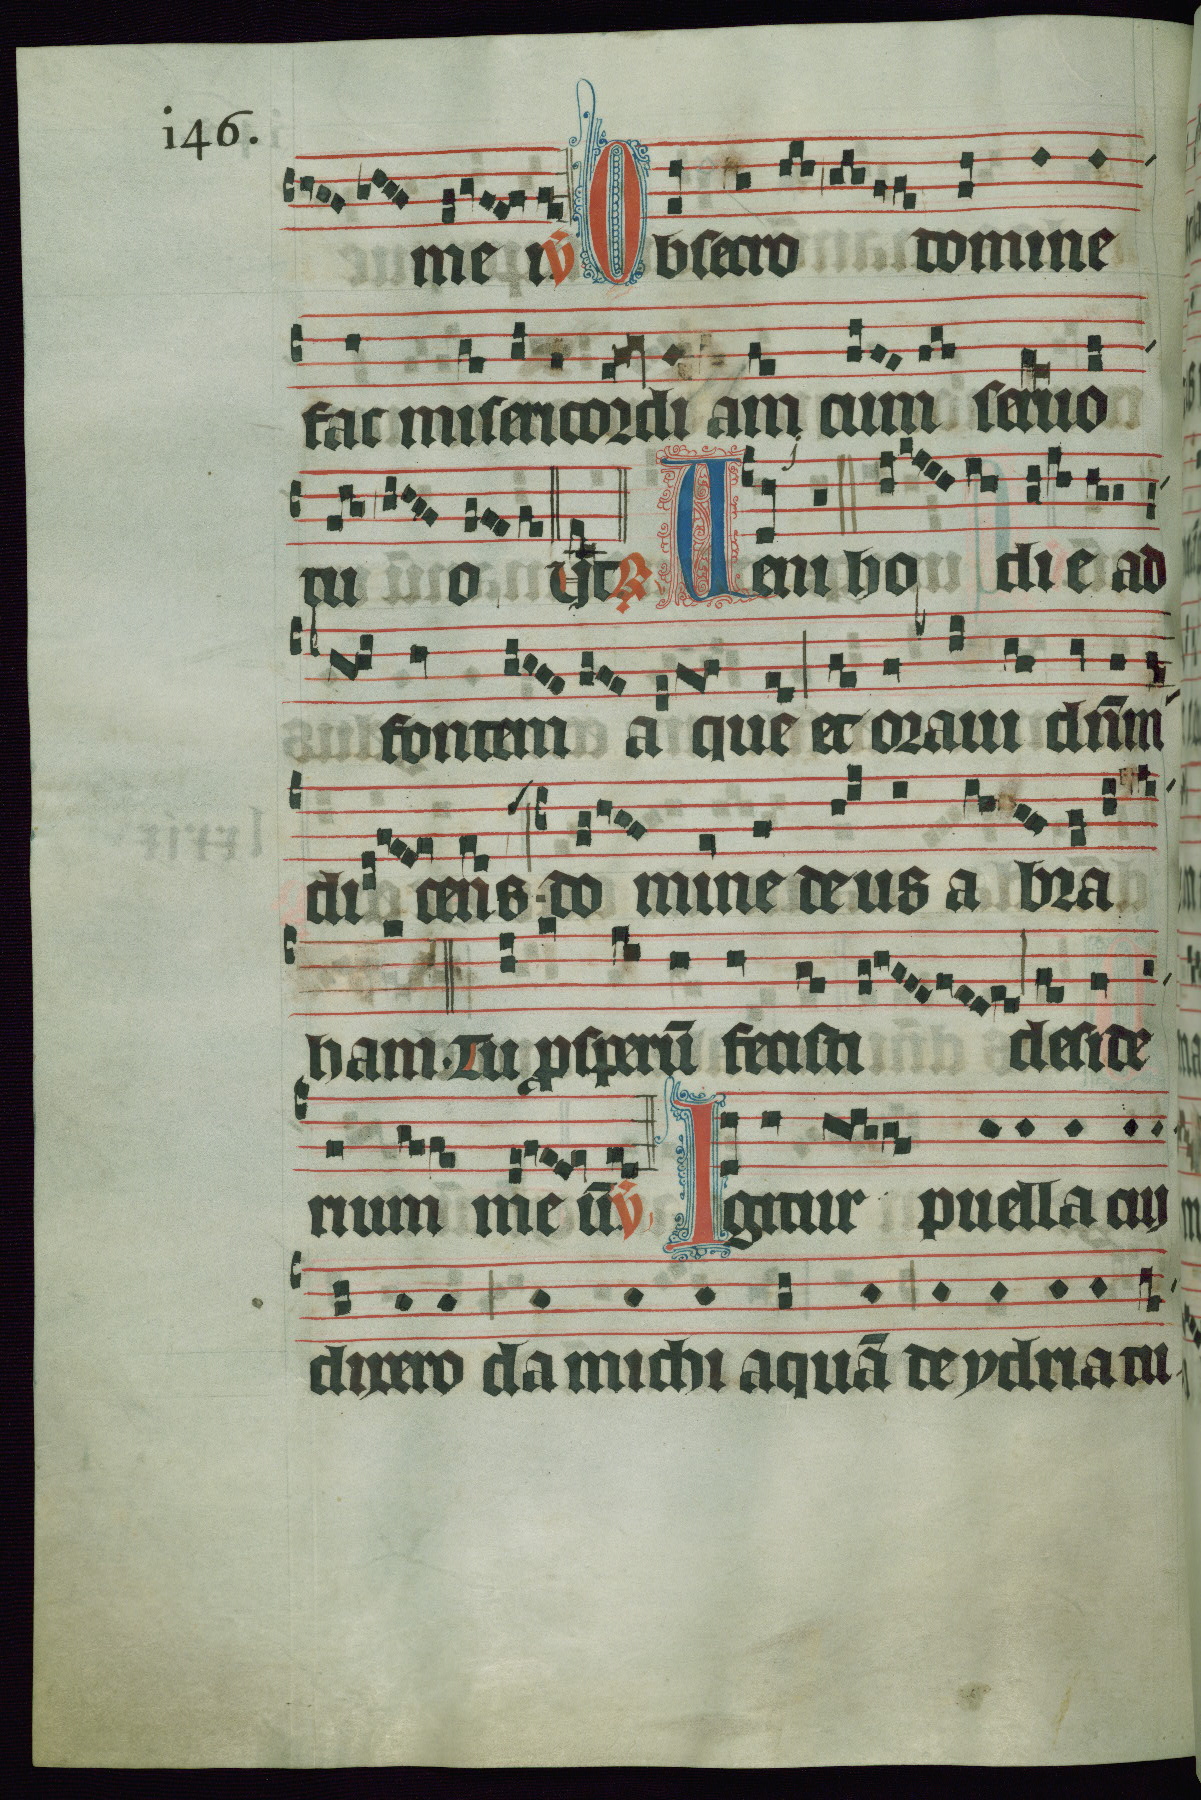 i46.
me i ℣ Obsecro domine
fac misericordi am cum seruo
tu o ℟ Ueni ho di e ad
fontem a que et oraui dn̄m
di cens do mine deus a bra
ham. Tu ꝓsperū fecisti deside
rium me ū ℣ Igitur puella cui
dixero da michi aquā de ydria tu